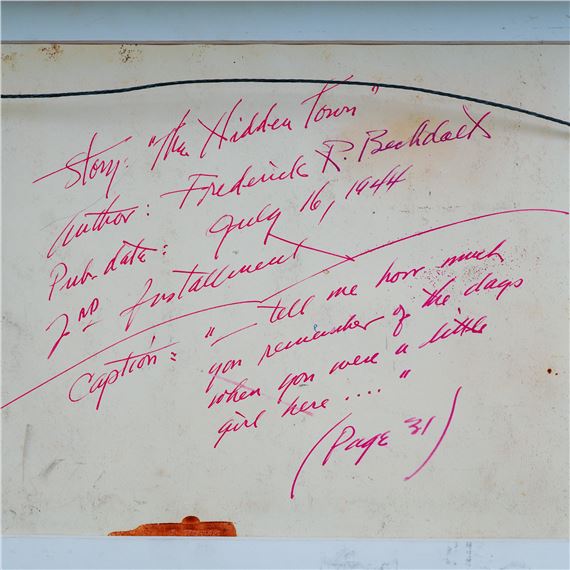 Story: "The Hidden Town"
Author: Frederick R. Bechdolt
Pub. date: July 16, 1944
2nd Installment
Caption: "— tell me how much
you remember of the days
when you were a little
girl here .... "
(Page 31)